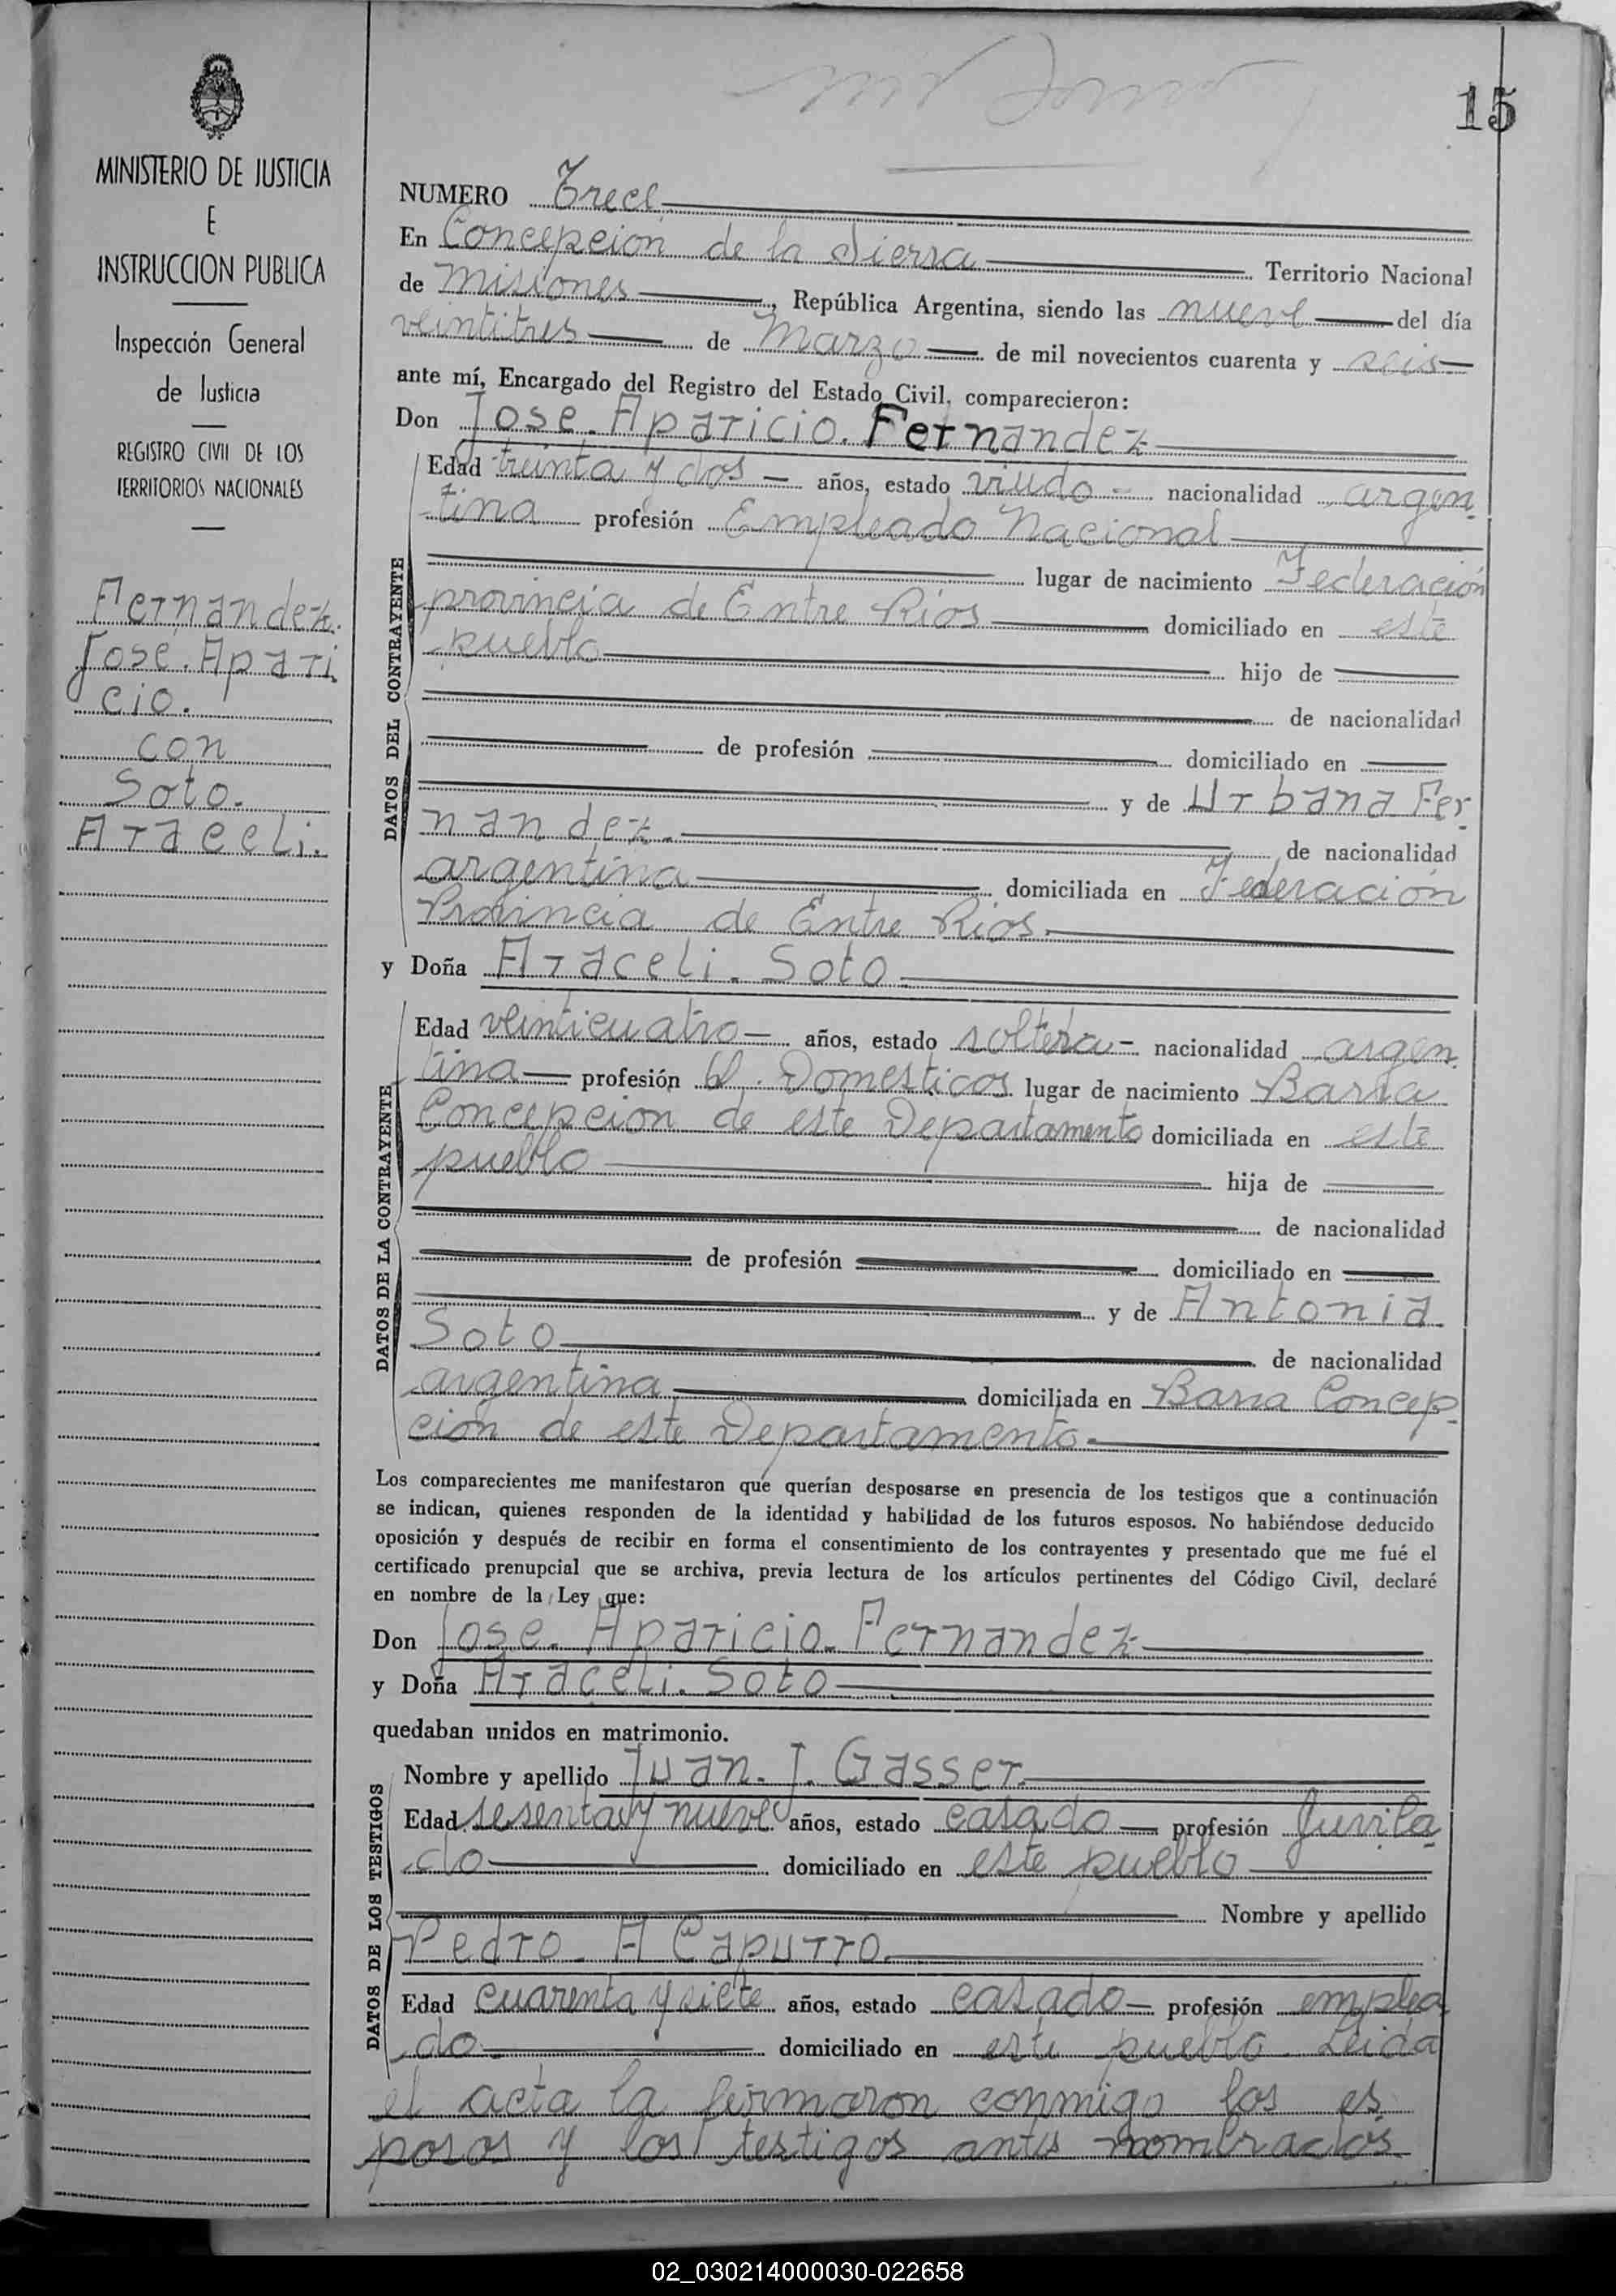 15
MINISTERIO DE JUSTICIA
E
INSTRUCCION PUBLICA
Inspección General
de Justicia
REGISTRO CIVIL DE LOS
TERRITORIOS NACIONALES
Fernandez.
Jose. Apari
cio.
con
Soto.
Araceli.
NUMERO Trece
En Concepcion de la Sierra Territorio Nacional
de Misiones, República Argentina, siendo las nueve del día
veintitres de Marzo de mil novecientos cuarenta y seis
ante mí, Encargado del Registro del Estado Civil, comparecieron:
Don Jose. Aparicio. Fernandez
DATOS DEL CONTRAYENTE
Edad treinta y dos años, estado viudo nacionalidad argen
tina profesión Empleado Nacional
lugar de nacimiento Federación
provincia de Entre Rios domiciliado en este
pueblo hijo de
de nacionalidad
de profesión domiciliado en
y de Urbana Fer
nandez. de nacionalidad
argentina domiciliada en Federación
Provincia de Entre Rios.
y Doña Araceli. Soto
DATOS DE LA CONTRAYENTE
Edad veinticuatro años, estado soltera nacionalidad argen
tina profesión Q. Domesticos lugar de nacimiento Barra
Concepcion de este Departamento domiciliada en este
pueblo hija de
de nacionalidad
de profesión domiciliado en
y de Antonia
Soto de nacionalidad
argentina domiciliada en Barra Concep
cion de este Departamento.
Los comparecientes me manifestaron que querían desposarse en presencia de los testigos que a continuación
se indican, quienes responden de la identidad y habilidad de los futuros esposos. No habiéndose deducido
oposición y después de recibir en forma el consentimiento de los contrayentes y presentado que me fué el
certificado prenupcial que se archiva, previa lectura de los artículos pertinentes del Código Civil, declaré
en nombre de la Ley que:
Don Jose. Aparicio. Fernandez
y Doña Araceli. Soto
quedaban unidos en matrimonio.
DATOS DE LOS TESTIGOS
Nombre y apellido Juan. J. Gasser.
Edad sesenta y nueve años, estado casado profesión Juvila
do domiciliado en este pueblo
Nombre y apellido
Pedro. A Capurro.
Edad cuarenta y siete años, estado casado profesión emplea
do domiciliado en este pueblo. Leida
el acta la firmaron conmigo los es
posos y los testigos antes nombrados
02_030214000030-022658